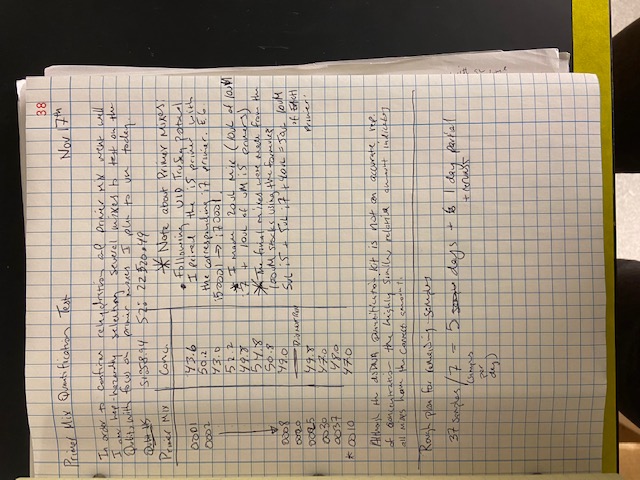 38
Primer Mix Quantification Test
Nov 17th
In order to confirm rehydration of primer mix went well
I am hap-hazardly selecting several mixes to test on the
Qubit, with focus on primer mixes I plan to use today.
S1: 58.94 S2: 22520.49
Primer Mix Conc.
0001 43.6
0002 50.2
43.0
52.2
49.8
54.8
50.8
0008 49.0
0020 Did not Run
0025 49.8
0030 47.0
0037 48.0
* 0010 47.0
* Note about Primer Mixes:
• Following UID TruSeq
I paired the i5 primer with
the corresponding i7 primer. E.G
i50001 → i70001.
* I made 20uL mix (10uL of 10uM
i7 + 10uL of uM i5 primers)
* The final mixes were made from the
100uM stocks using the formula:
5uL i5 + 5uL i7 + 40uL = 50uL 10uM
of EACH
Primer.
Although the dsDNA Quantification Kit is not an accurate rep.
of concentration the highly similar relative amount indicates
all mixes have the correct amount.
Rough plan for remaining samples
37 samples / 7 = 5 days + 1 day partial
(samples
per
day)